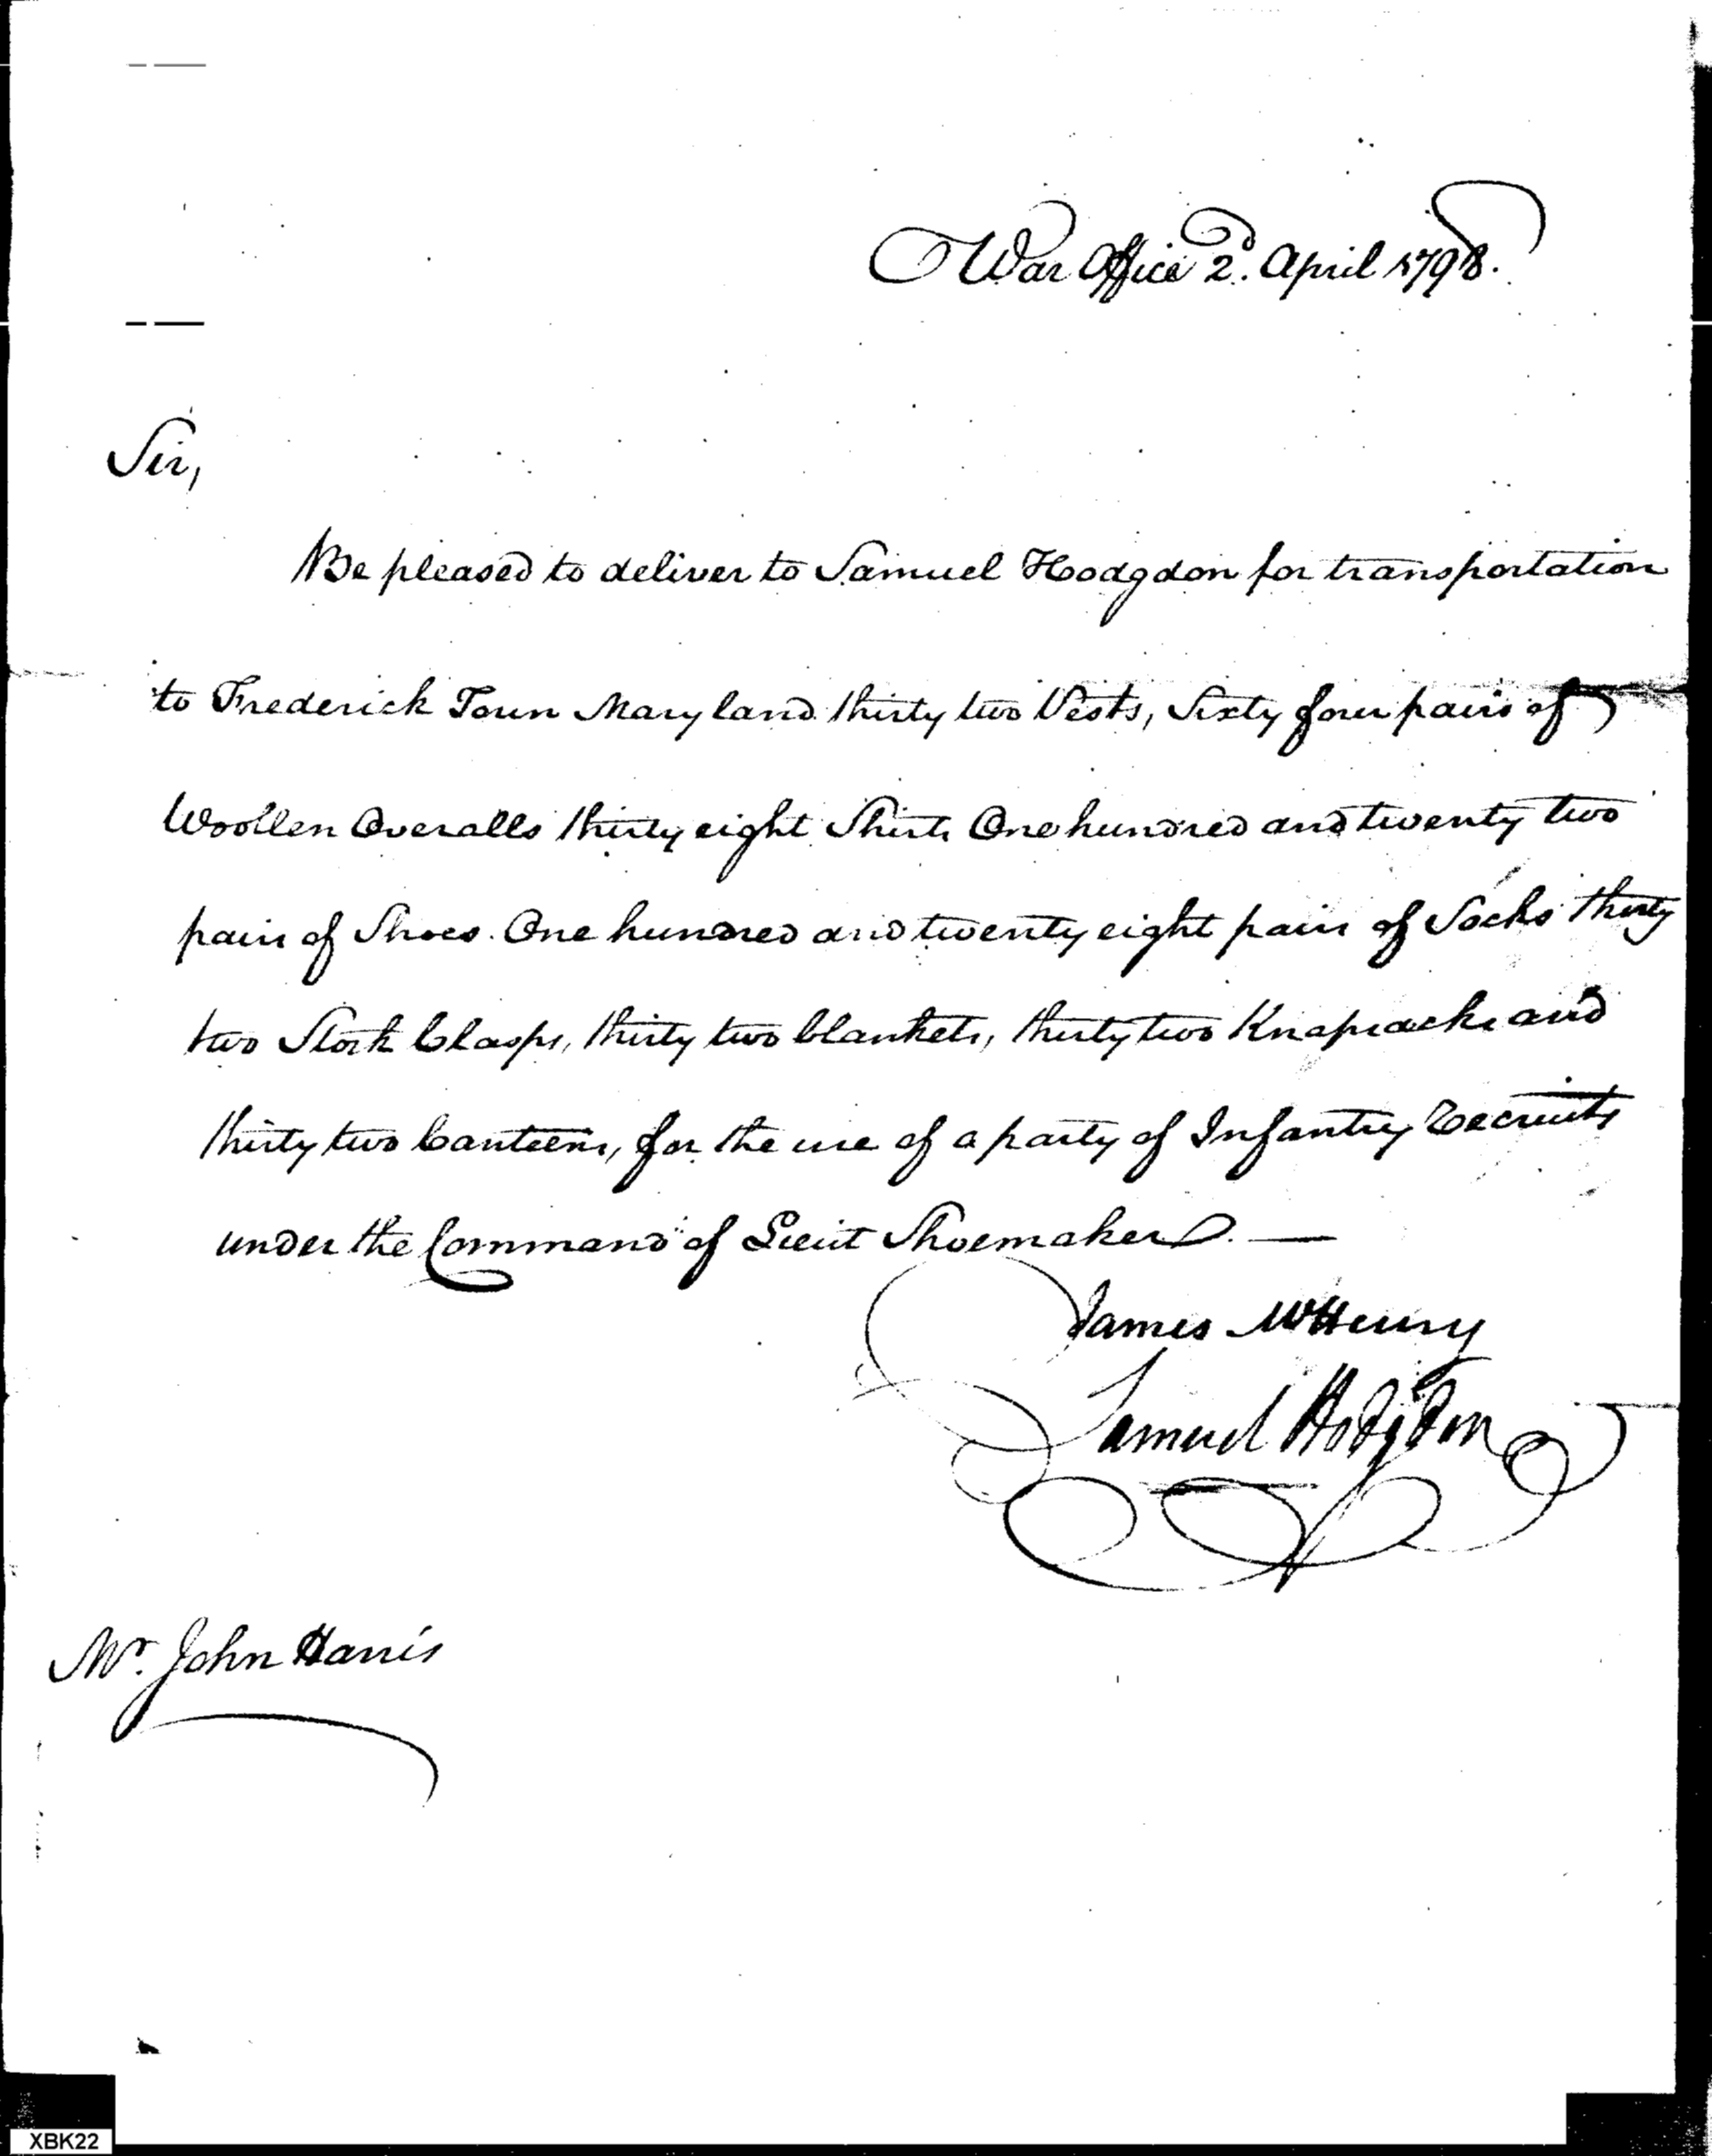 War Office 2d. April 1798.
Sir,
Be pleased to deliver to Samuel Hodgdon for transportation
to Frederick Town Maryland thirty two Vests, Sixty four pairs of
Woollen Overalls thirty eight Shirts One hundred and twenty two
pairs of Shoes. One hundred and twenty eight pairs of Socks thirty
two Stock Clasps, thirty two blankets, thirty two Knapsacks and
thirty two Canteens, for the use of a party of Infantry Recruits
under the Command of Lieut Shoemaker. —
James McHenry
Samuel Hodgdon
Mr. John Harris
XBK22